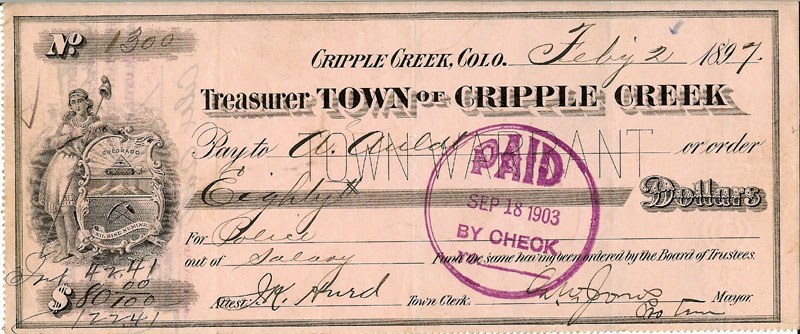 No. 1300
CRIPPLE CREEK, COLO. Feby 2 1897.
Treasurer TOWN OF CRIPPLE CREEK
TOWN WARRANT
Pay to A. Auld or order
Eighty Dollars
For Police
out of Salary Fund the same having been ordered by the Board of Trustees.
Attest J.K. Hurd Town Clerk. Mayor.
Pro Tem
COLORADO
NIL SINE NUMINE
Int 42.41
$ 80.00
122 41
PAID
SEP 18 1903
BY CHECK